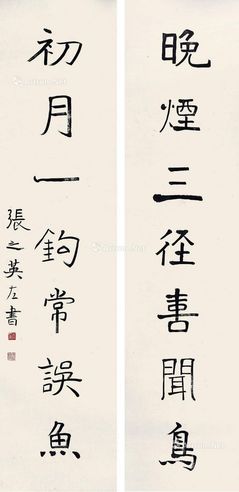 晚煙三径喜聞鳥
初月一鉤常誤魚
張之英左書